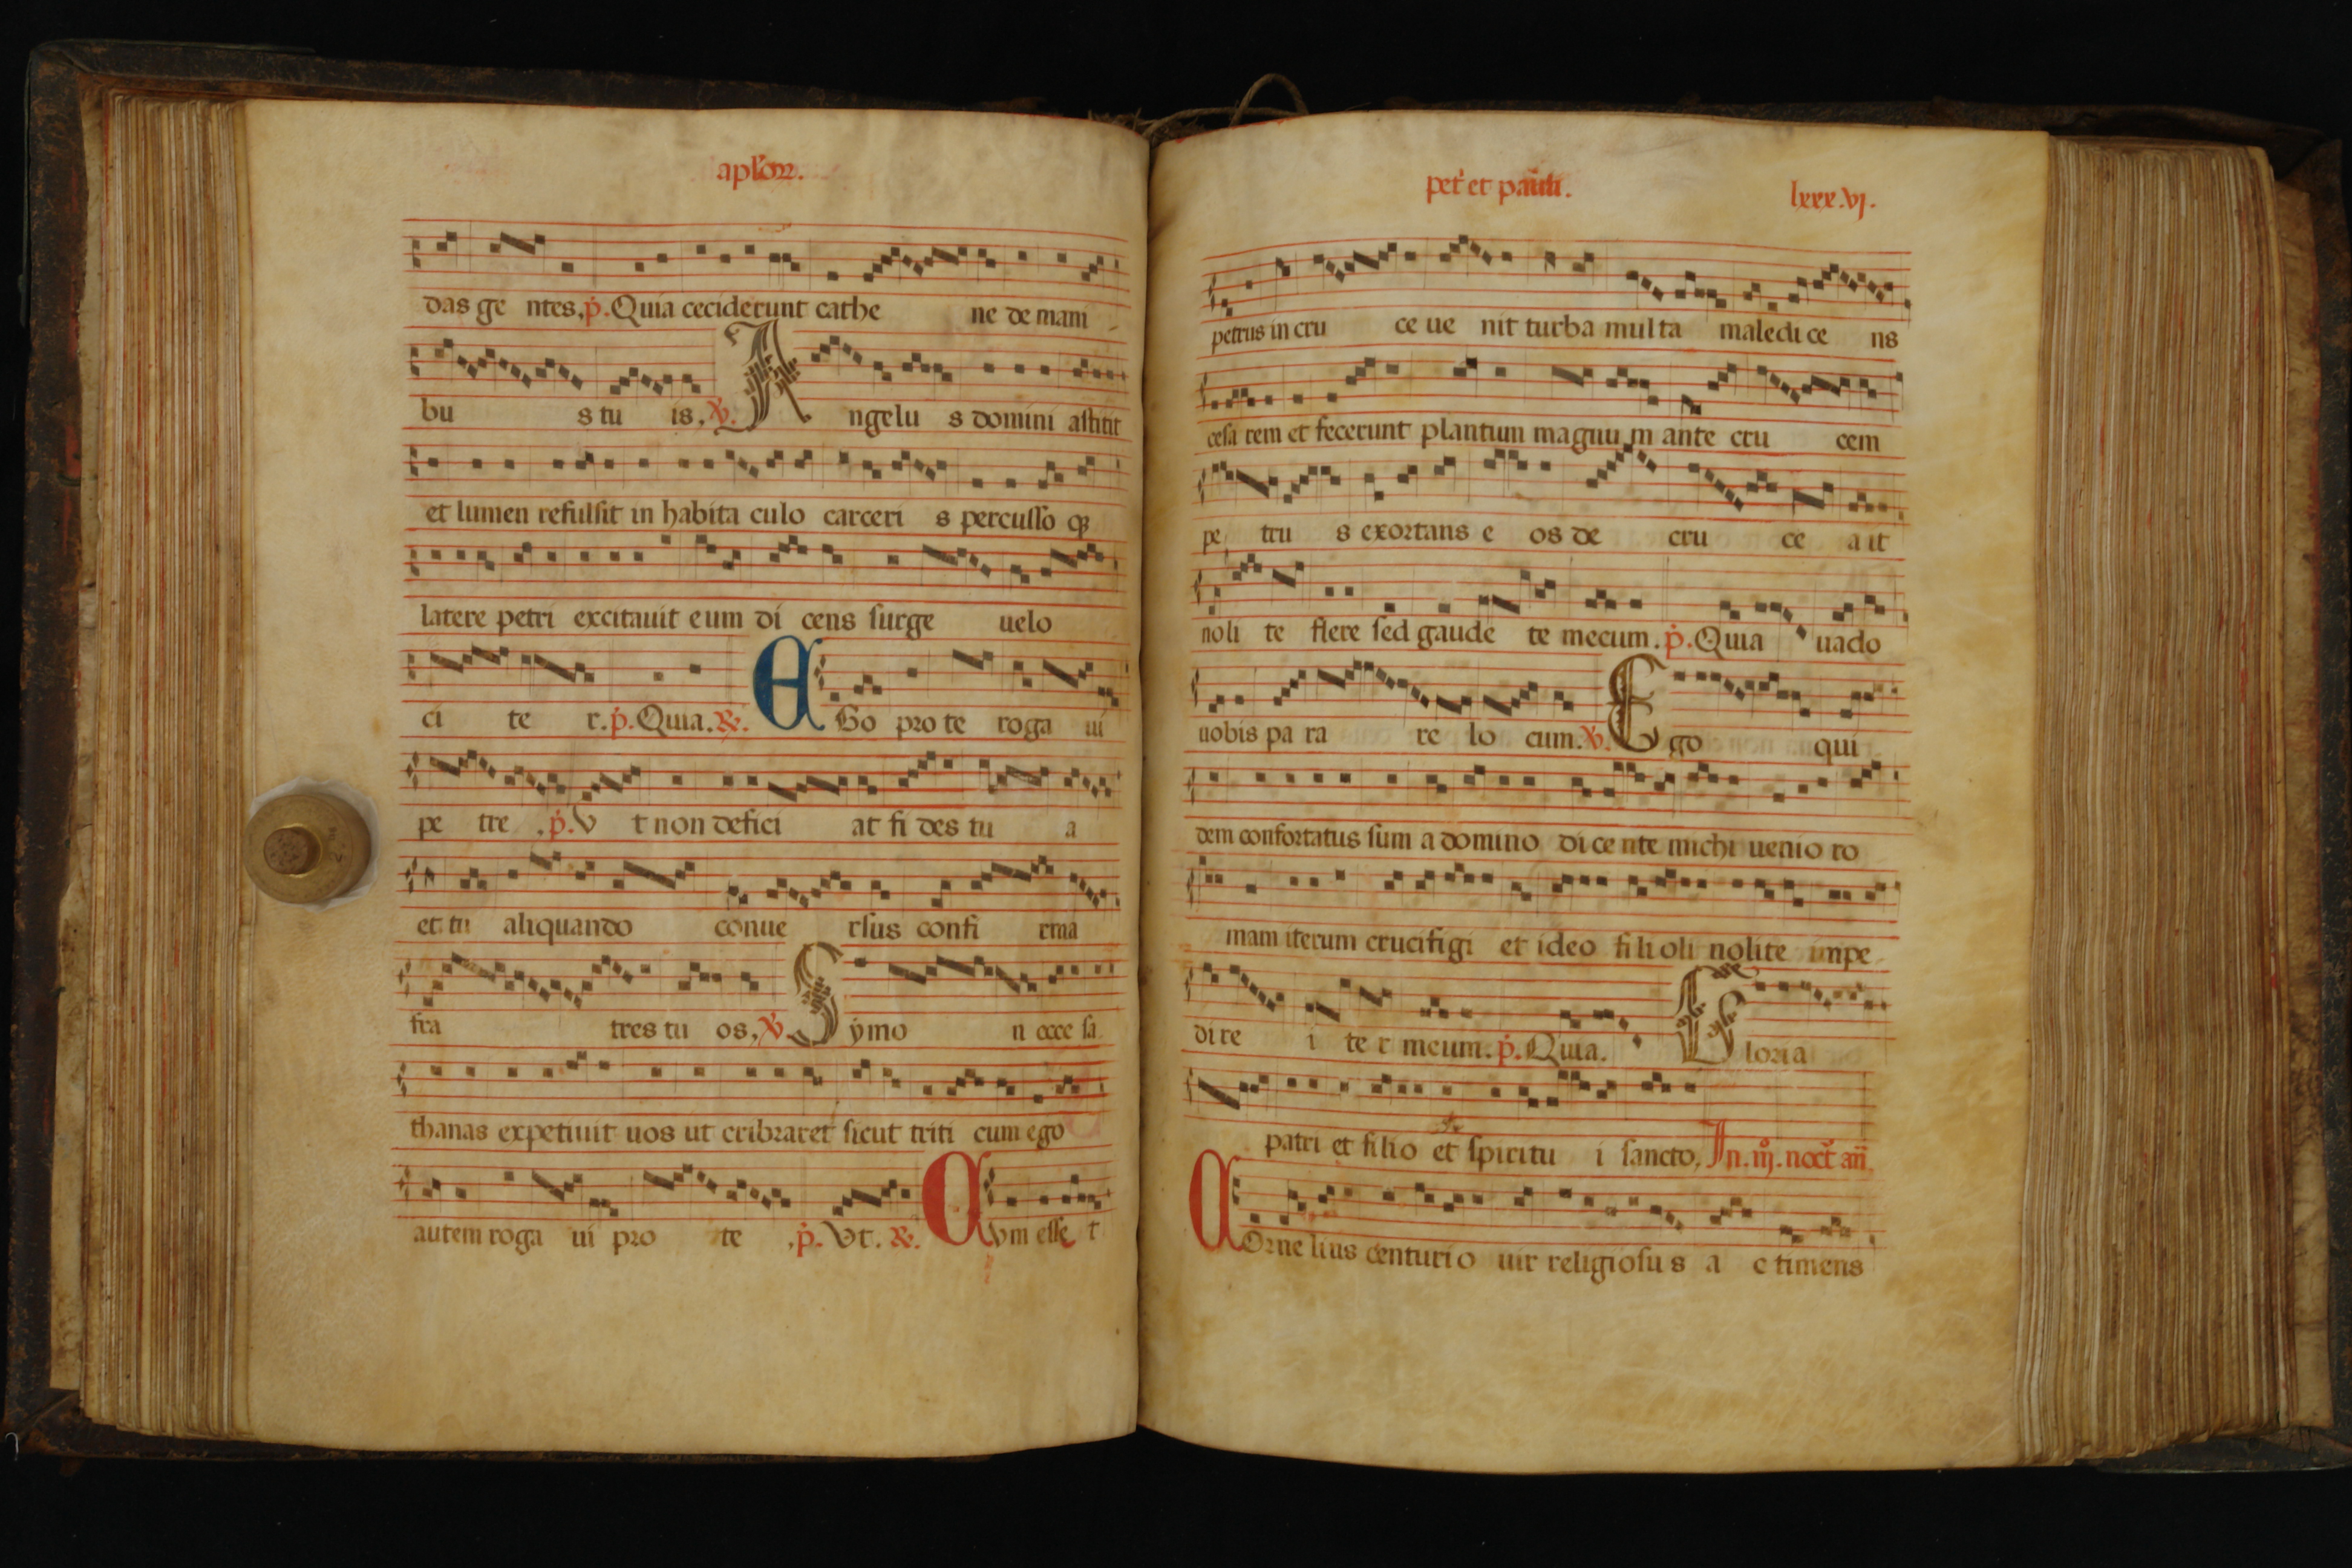 aplor.
das ge ntes. p. Quia ceciderunt cathe ne de mani
bu s tu is. V. A ngelu s domini astitit
et lumen refulsit in habita culo carceri s percusso qȝ
latere petri excitauit eum di cens surge uelo
ci te r. p. Quia. R. E Go pro te roga ui
pe tre . p. V t non defici at fi des tu a
et tu aliquando conue rsus confi rma
fra tres tu os. V. S ymo n ecce sa
thanas expetiuit uos ut cribraret sicut triti cum ego
autem roga ui pro te . p. Vt. R. C Vm esse t
pet' et pauli. lxxx.vj.
petrus in cru ce ue nit turba multa maledi ce ns
cesa rem et fecerunt plantum magnu m ante cru cem
pe tru s exortans e os de cru ce a it
noli te flere sed gaude te mecum. p. Quia uado
uobis pa ra re lo cum. V. E go qui
dem confortatus sum a domino di ce nte michi uenio ro
mam iterum crucifigi et ideo fili oli nolite impe
di re i te r meum. p. Quia. G loria
patri et filio et spiritu i sancto. In. iij. noct' an
C Orne lius centurio uir religiosu s a c timens